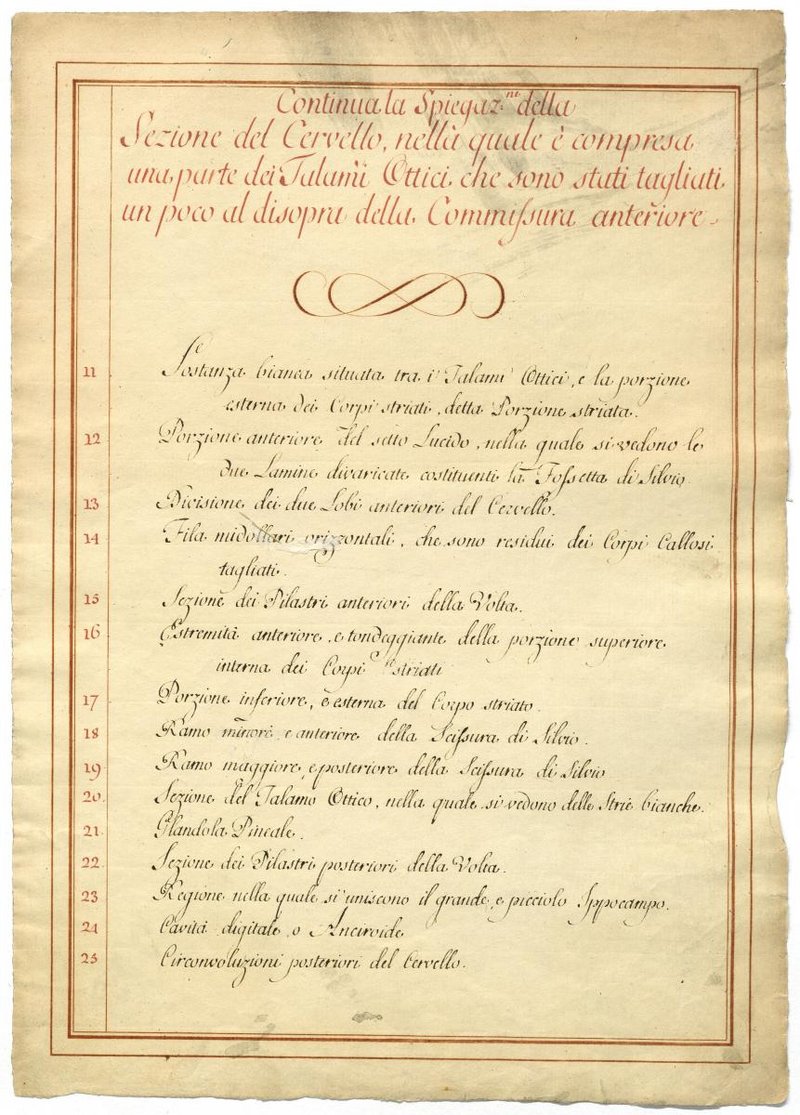 Continua la Spiegaz.ne della
Sezione del Cervello, nella quale è compresa
una parte dei Talami Ottici, che sono stati tagliati
un poco al disopra della Commissura anteriore.
11 Sostanza bianca situata tra i Talami Ottici, e la porzione
esterna dei Corpi striati, detta Porzione striata.
12 Porzione anteriore del setto Lucido, nella quale si vedono le
due Lamine divaricate costituenti la Fossetta di Silvio
13 Divisione dei due Lobi anteriori del Cervello.
14 Fila midollari orizzontali, che sono residui dei Corpi Callosi
tagliati.
15 Sezione dei Pilastri anteriori della Volta.
16 Estremità anteriore, e tondeggiante della porzione superiore
interna dei Corpi striati
17 Porzione inferiore, e esterna del Corpo striato.
18 Ramo minore e anteriore della Scissura di Silvio.
19 Ramo maggiore, e posteriore della Scissura di Silvio
20 Sezione del Talamo Ottico, nella quale si vedono delle Strie bianche.
21 Glandola Pineale.
22 Sezione dei Pilastri posteriori della Volta.
23 Regione nella quale si uniscono il grande, e picciolo Ippocampo.
24 Cavità digitale, o Anciroide
25 Circonvoluzioni posteriori del Cervello.